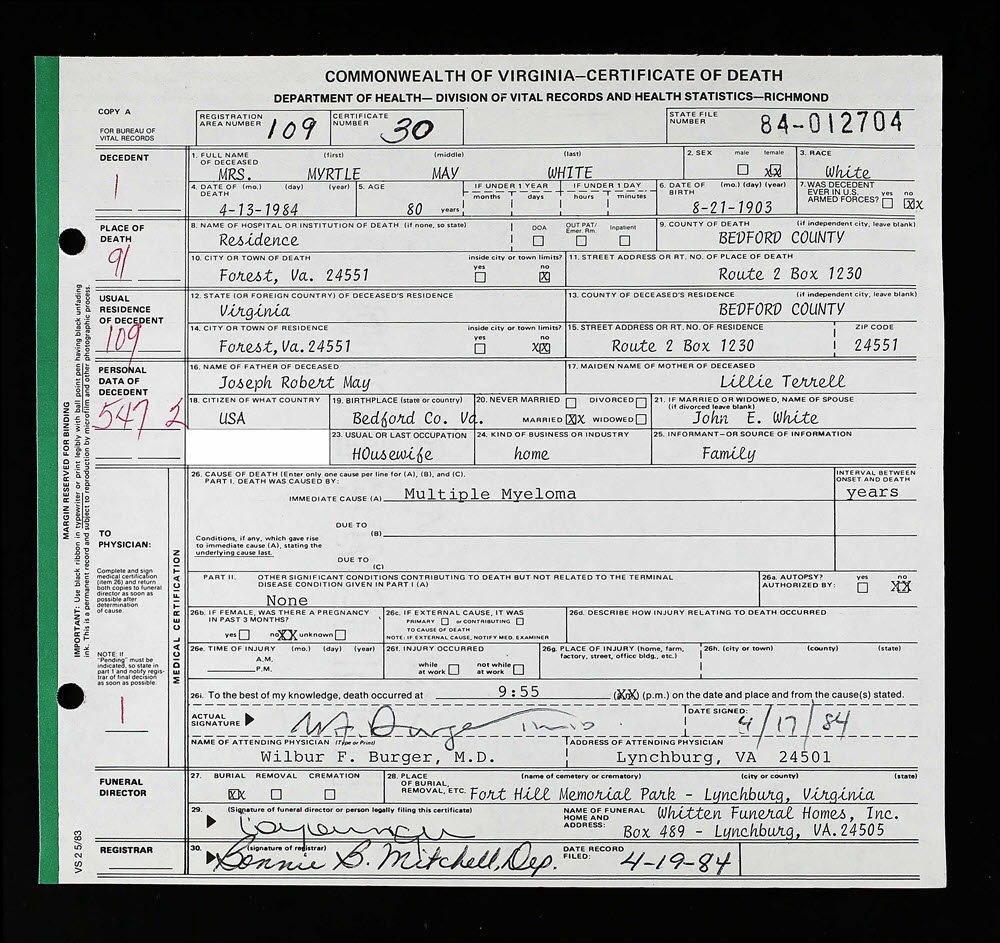 COMMONWEALTH OF VIRGINIA—CERTIFICATE OF DEATH
DEPARTMENT OF HEALTH— DIVISION OF VITAL RECORDS AND HEALTH STATISTICS—RICHMOND
COPY A
FOR BUREAU OF VITAL RECORDS
REGISTRATION AREA NUMBER 109 CERTIFICATE NUMBER 30 STATE FILE NUMBER 84-012704
DECEDENT
1
1. FULL NAME OF DECEASED (first) (middle) (last) 2. SEX male female 3. RACE
MRS. MYRTLE MAY WHITE XX White
4. DATE OF DEATH (mo.) (day) (year) 5. AGE IF UNDER 1 YEAR months days IF UNDER 1 DAY hours minutes 6. DATE OF BIRTH (mo.) (day) (year) 7. WAS DECEDENT EVER IN U.S. ARMED FORCES? yes no
4-13-1984 80 years 8-21-1903 XX
PLACE OF DEATH
91
8. NAME OF HOSPITAL OR INSTITUTION OF DEATH (if none, so state) DOA OUT PAT/ Emer. Rm. Inpatient 9. COUNTY OF DEATH (if independent city, leave blank)
Residence BEDFORD COUNTY
10. CITY OR TOWN OF DEATH inside city or town limits? yes no 11. STREET ADDRESS OR RT. NO. OF PLACE OF DEATH
Forest, Va. 24551 X Route 2 Box 1230
USUAL RESIDENCE OF DECEDENT
109
12. STATE (OR FOREIGN COUNTRY) OF DECEASED'S RESIDENCE 13. COUNTY OF DECEASED'S RESIDENCE (if independent city, leave blank)
Virginia BEDFORD COUNTY
14. CITY OR TOWN OF RESIDENCE inside city or town limits? yes no 15. STREET ADDRESS OR RT. NO. OF RESIDENCE ZIP CODE
Forest, Va. 24551 XX Route 2 Box 1230 24551
PERSONAL DATA OF DECEDENT
547 2
16. NAME OF FATHER OF DECEASED 17. MAIDEN NAME OF MOTHER OF DECEASED
Joseph Robert May Lillie Terrell
18. CITIZEN OF WHAT COUNTRY 19. BIRTHPLACE (state or country) 20. NEVER MARRIED DIVORCED MARRIED XX WIDOWED 21. IF MARRIED OR WIDOWED, NAME OF SPOUSE (if divorced leave blank)
USA Bedford Co. Va. John E. White
23. USUAL OR LAST OCCUPATION 24. KIND OF BUSINESS OR INDUSTRY 25. INFORMANT—OR SOURCE OF INFORMATION
HOusewife home Family
MARGIN RESERVED FOR BINDING
IMPORTANT: Use black ribbon in typewriter or print legibly with ball point pen having black unfading
ink. This is a permanent record and subject to reproduction by microfilm and other photographic process.
TO PHYSICIAN:
Complete and sign medical certification (item 26) and return both copies to funeral director as soon as possible after determination of cause.
NOTE: If "Pending" must be indicated, so state in part 1 and notify registrar of final decision as soon as possible.
1
MEDICAL CERTIFICATION
26. CAUSE OF DEATH (Enter only one cause per line for (A), (B), and (C). INTERVAL BETWEEN ONSET AND DEATH
PART I. DEATH WAS CAUSED BY:
IMMEDIATE CAUSE (A) Multiple Myeloma years
DUE TO (B)
Conditions, if any, which gave rise to immediate cause (A), stating the underlying cause last.
DUE TO (C)
PART II. OTHER SIGNIFICANT CONDITIONS CONTRIBUTING TO DEATH BUT NOT RELATED TO THE TERMINAL DISEASE CONDITION GIVEN IN PART I (A) 26a. AUTOPSY? AUTHORIZED BY: yes no XX
None
26b. IF FEMALE, WAS THERE A PREGNANCY IN PAST 3 MONTHS? yes no XX unknown
26c. IF EXTERNAL CAUSE, IT WAS PRIMARY or CONTRIBUTING TO CAUSE OF DEATH
NOTE: IF EXTERNAL CAUSE, NOTIFY MED. EXAMINER
26d. DESCRIBE HOW INJURY RELATING TO DEATH OCCURRED
26e. TIME OF INJURY (mo.) (day) (year) A.M. P.M. 26f. INJURY OCCURRED while at work not while at work 26g. PLACE OF INJURY (home, farm, factory, street, office bldg., etc.) 26h. (city or town) (county) (state)
26i. To the best of my knowledge, death occurred at 9:55 (XX) (p.m.) on the date and place and from the cause(s) stated.
ACTUAL SIGNATURE W F. Burger DATE SIGNED: 4/17/84
NAME OF ATTENDING PHYSICIAN (Type or Print) ADDRESS OF ATTENDING PHYSICIAN
Wilbur F. Burger, M.D. Lynchburg, VA 24501
FUNERAL DIRECTOR
27. BURIAL REMOVAL CREMATION 28. PLACE OF BURIAL, REMOVAL, ETC. (name of cemetery or crematory) (city or county) (state)
XX Fort Hill Memorial Park - Lynchburg, Virginia
29. (Signature of funeral director or person legally filing this certificate) NAME OF FUNERAL HOME AND ADDRESS: Whitten Funeral Homes, Inc.
Box 489 - Lynchburg, VA. 24505
REGISTRAR
30. (signature of registrar) Bonnie B. Mitchell, Dep. DATE RECORD FILED: 4-19-84
VS 2 5/83